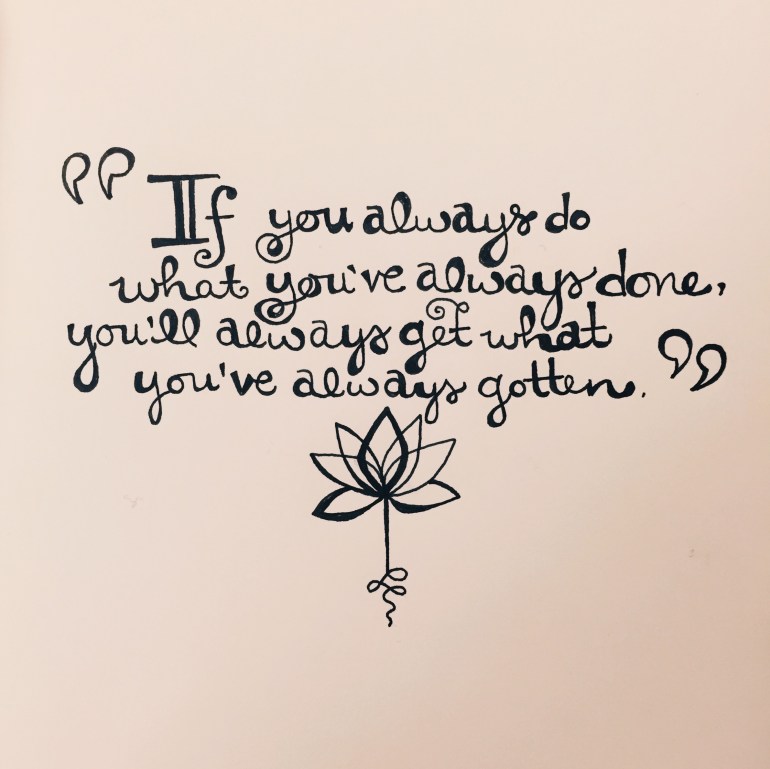 "If you always do
what you've always done,
you'll always get what
you've always gotten."